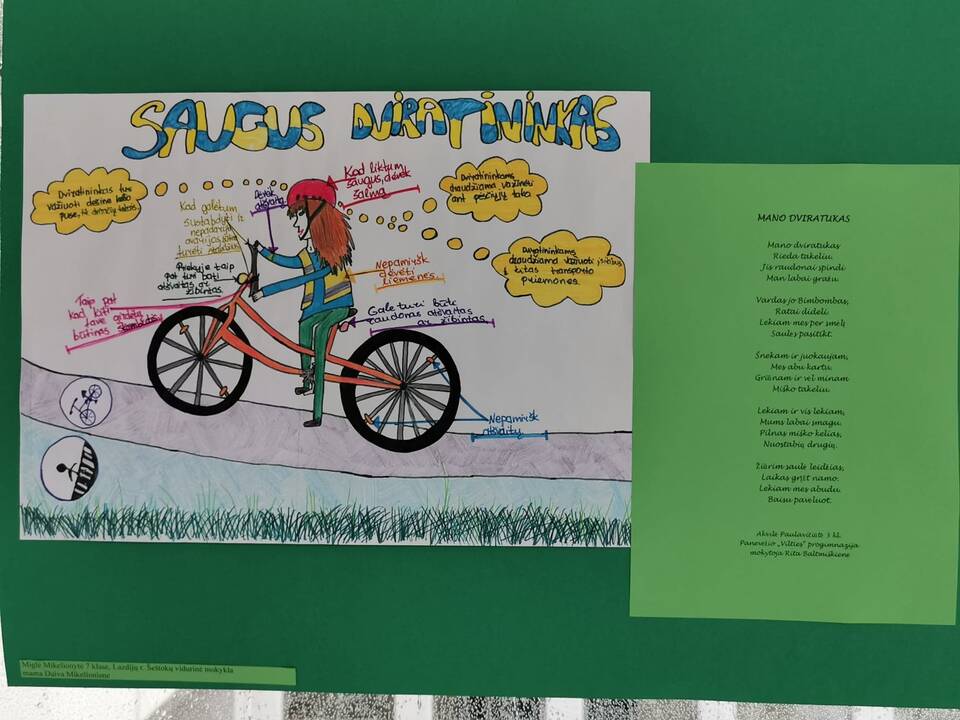 SAUGUS DVIRATININKAS
Dviratininkas turi
važiuoti dešine kelio
puse, ir dviračių takais.
Kad galėtum
sustabdyti ir
nepadaryti
avarijos,
turėti stabdžius
Dėvėk
atšvaitą
Kad liktum
saugus, dėvėk
šalmą
Dviratininkams
draudžiama važinėti
ant pėsčiųjų tako.
Dviratininkams
draudžiama važiuoti įsikibus
į kitas transporto
priemones.
Priekyje taip
pat turi būti
atšvaitas ar
žibintas.
Nepamiršk
dėvėti
liemenės.
Taip pat
kad kiti
tave girdėtų
būtinas skambutis
Gale turi būti
raudonas atšvaitas
ar žibintas.
Nepamiršk
atšvaitų
MANO DVIRATUKAS
Mano dviratukas
Rieda takeliu.
Jis raudonai spindi
Man labai gražu.
Vardas jo Bimbombas,
Ratai dideli.
Lekiam mes per smėlį
Saulės pasitikt.
Šnekam ir juokaujam,
Mes abu kartu.
Grįžnam ir vėl minam
Miško takeliu.
Lekiam ir vis lekiam,
Mums labai smagu.
Pilnas miško kelias,
Nuostabių drugių.
Žiūrim saulė leidžias,
Laikas grįžt namo.
Lekiam mes abudu.
Baisu pavėluot.
Akvilė Paulavičiūtė 3 kl.
Panevėžio „Vilties" progimnazija
mokytoja Rita Baltmiškienė
Miglė Mikelionytė 7 klasė, Lazdijų r. Šeštokų vidurinė mokykla
mama Daiva Mikelionienė